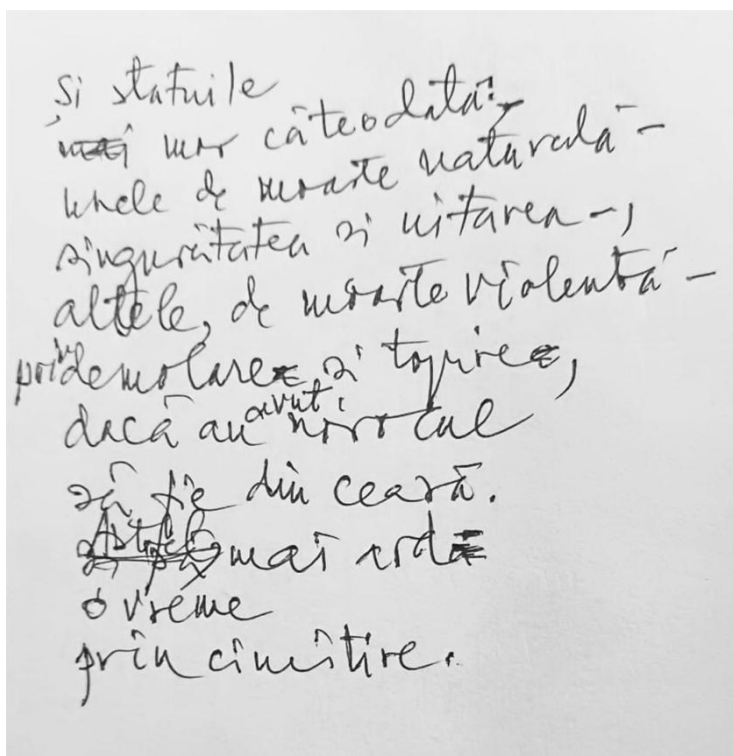 Și statuile
mor câteodată:
unele de moarte naturală –
singurătatea și uitarea –,
altele, de moarte violentă –
prin demolare și topire,
dacă au avut norocul
să fie din ceară.
mai ard
o vreme
prin cimitire.